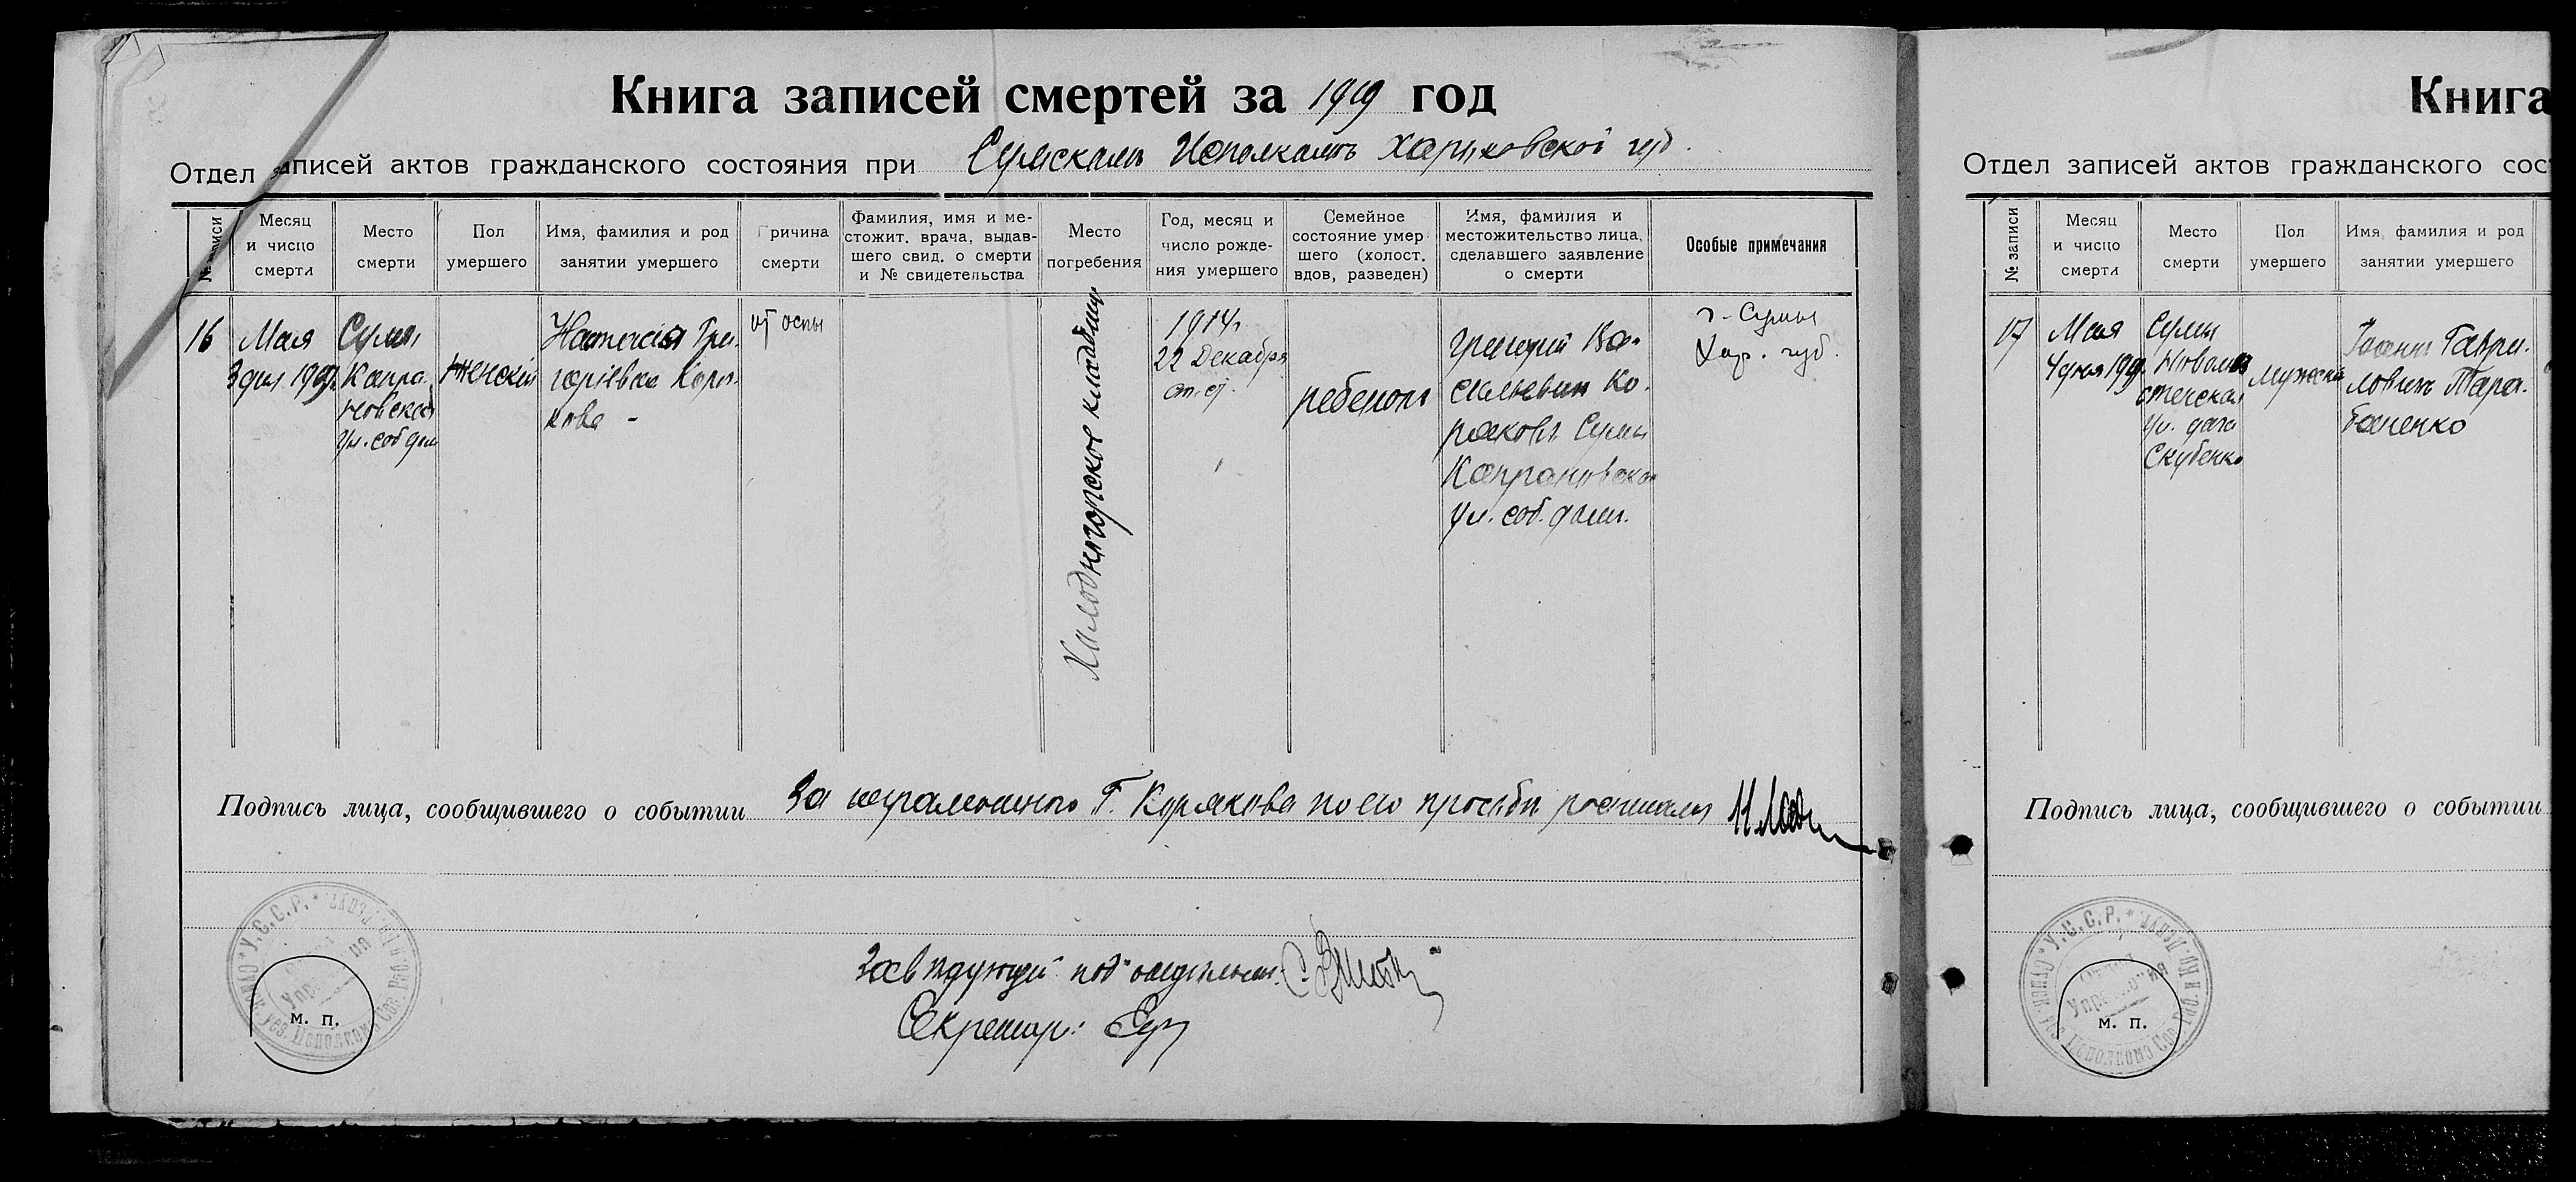 Книга записей смертей за 1919 год
Отдел записей актов гражданского состояния при Сумскомъ Исполкомъ Харьковской губ.
№ записи
Месяц
и число
смерти
Место
смерти
Пол
умершего
Имя, фамилия и род
занятии умершего
Причина
смерти
Фамилия, имя и ме-
стожит. врача, выдав-
шего свид. о смерти
и № свидетельства
Место
погребения
Год, месяц и
число рожде-
ния умершего
Семейное
состояние умер
шего (холост.
вдов, разведен)
Имя, фамилия и
местожительство лица,
сделавшего заявление
о смерти
Особые примечания
16
Мая
3 дня 1919г.
Сумы,
Капра-
новская
ул. соб дом
Женскій
Настасія Гри-
горіевна Коря-
кова -
от оспы
Холодногорское кладбище
1914г
22 Декабря
ст. ст.
ребенокъ
Григорій Ва-
сильевич Ко-
ряковъ Сумы
Капрановская
ул. соб. домъ.
г. Сумы
Хар. губ.
Подпись лица, сообщившего о событии За неграмотного Г. Корякова по его просьбѣ росписался
Завѣдующій под отдѣломъ
Секретарь:
У.С.С.Р.
м. п.
Книга
Отдел записей актов гражданского сос
№ записи
Месяц
и число
смерти
Место
смерти
Пол
умершего
Имя фамилия и род
занятии умершего
17
Мая
4 дня 1919г.
Сумы
ул. дача
Скубенко
Мужской
Іоанъ Гаври-
ловичъ Тара-
баненко
Подпись лица, сообщившего о событии
У.С.С.Р.
м. п.